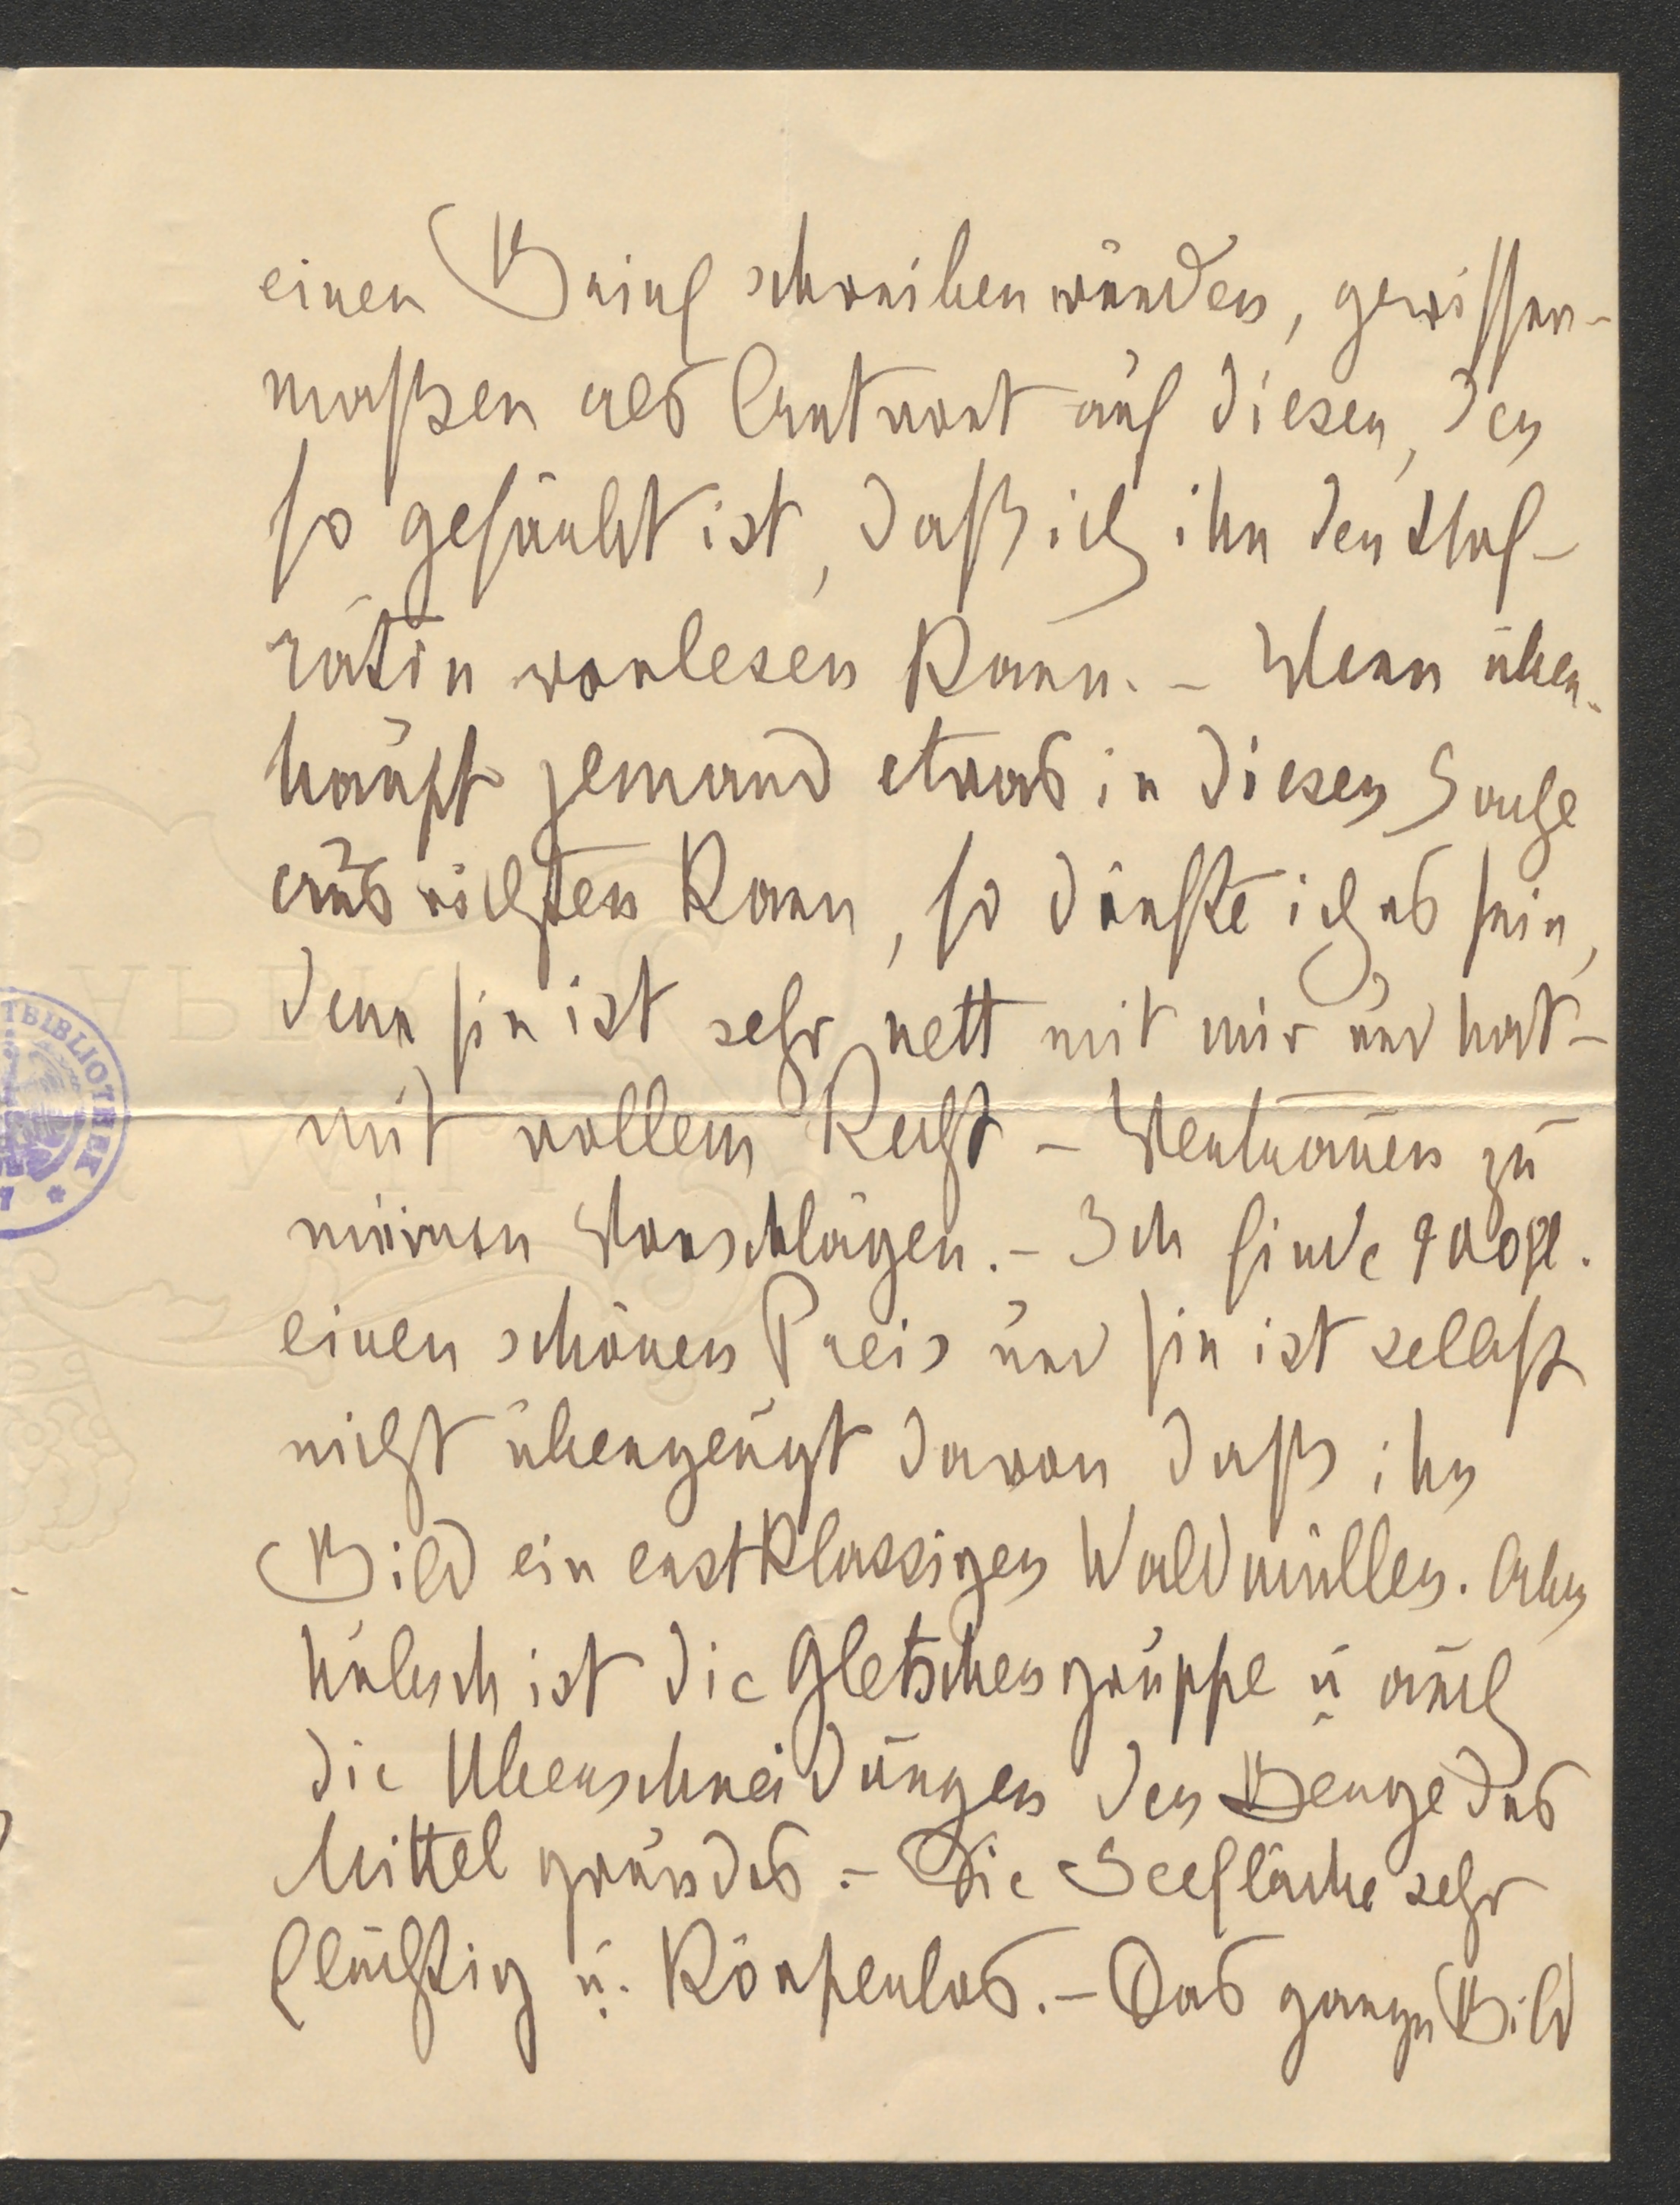 einen Brief schreiben würden, gewisser-
maßen als Antwort auf diesen, der
so gefärbt ist, daß ich ihn der Hof-
rätin vorlesen kann. – Wenn über-
haupt jemand etwas in dieser Sache
ausrichten kann, so dürfte ich es sein,
denn sie ist sehr nett mit mir und hat –
mit vollem Recht – Vertrauen zu
meinen Vorschlägen. – Ich finde 900 fl.
einen schönen Preis und sie ist selbst
nicht überzeugt davon daß ihr
Bild ein erstklassiger Waldmüller. Aber
hübsch ist die Gletschergruppe u auch
die Überschneidungen der Berge des
Mittelgrundes. – Die Seefläche sehr
flüchtig u. körperlos. – Das ganze Bild
TBIBLIOTHEK